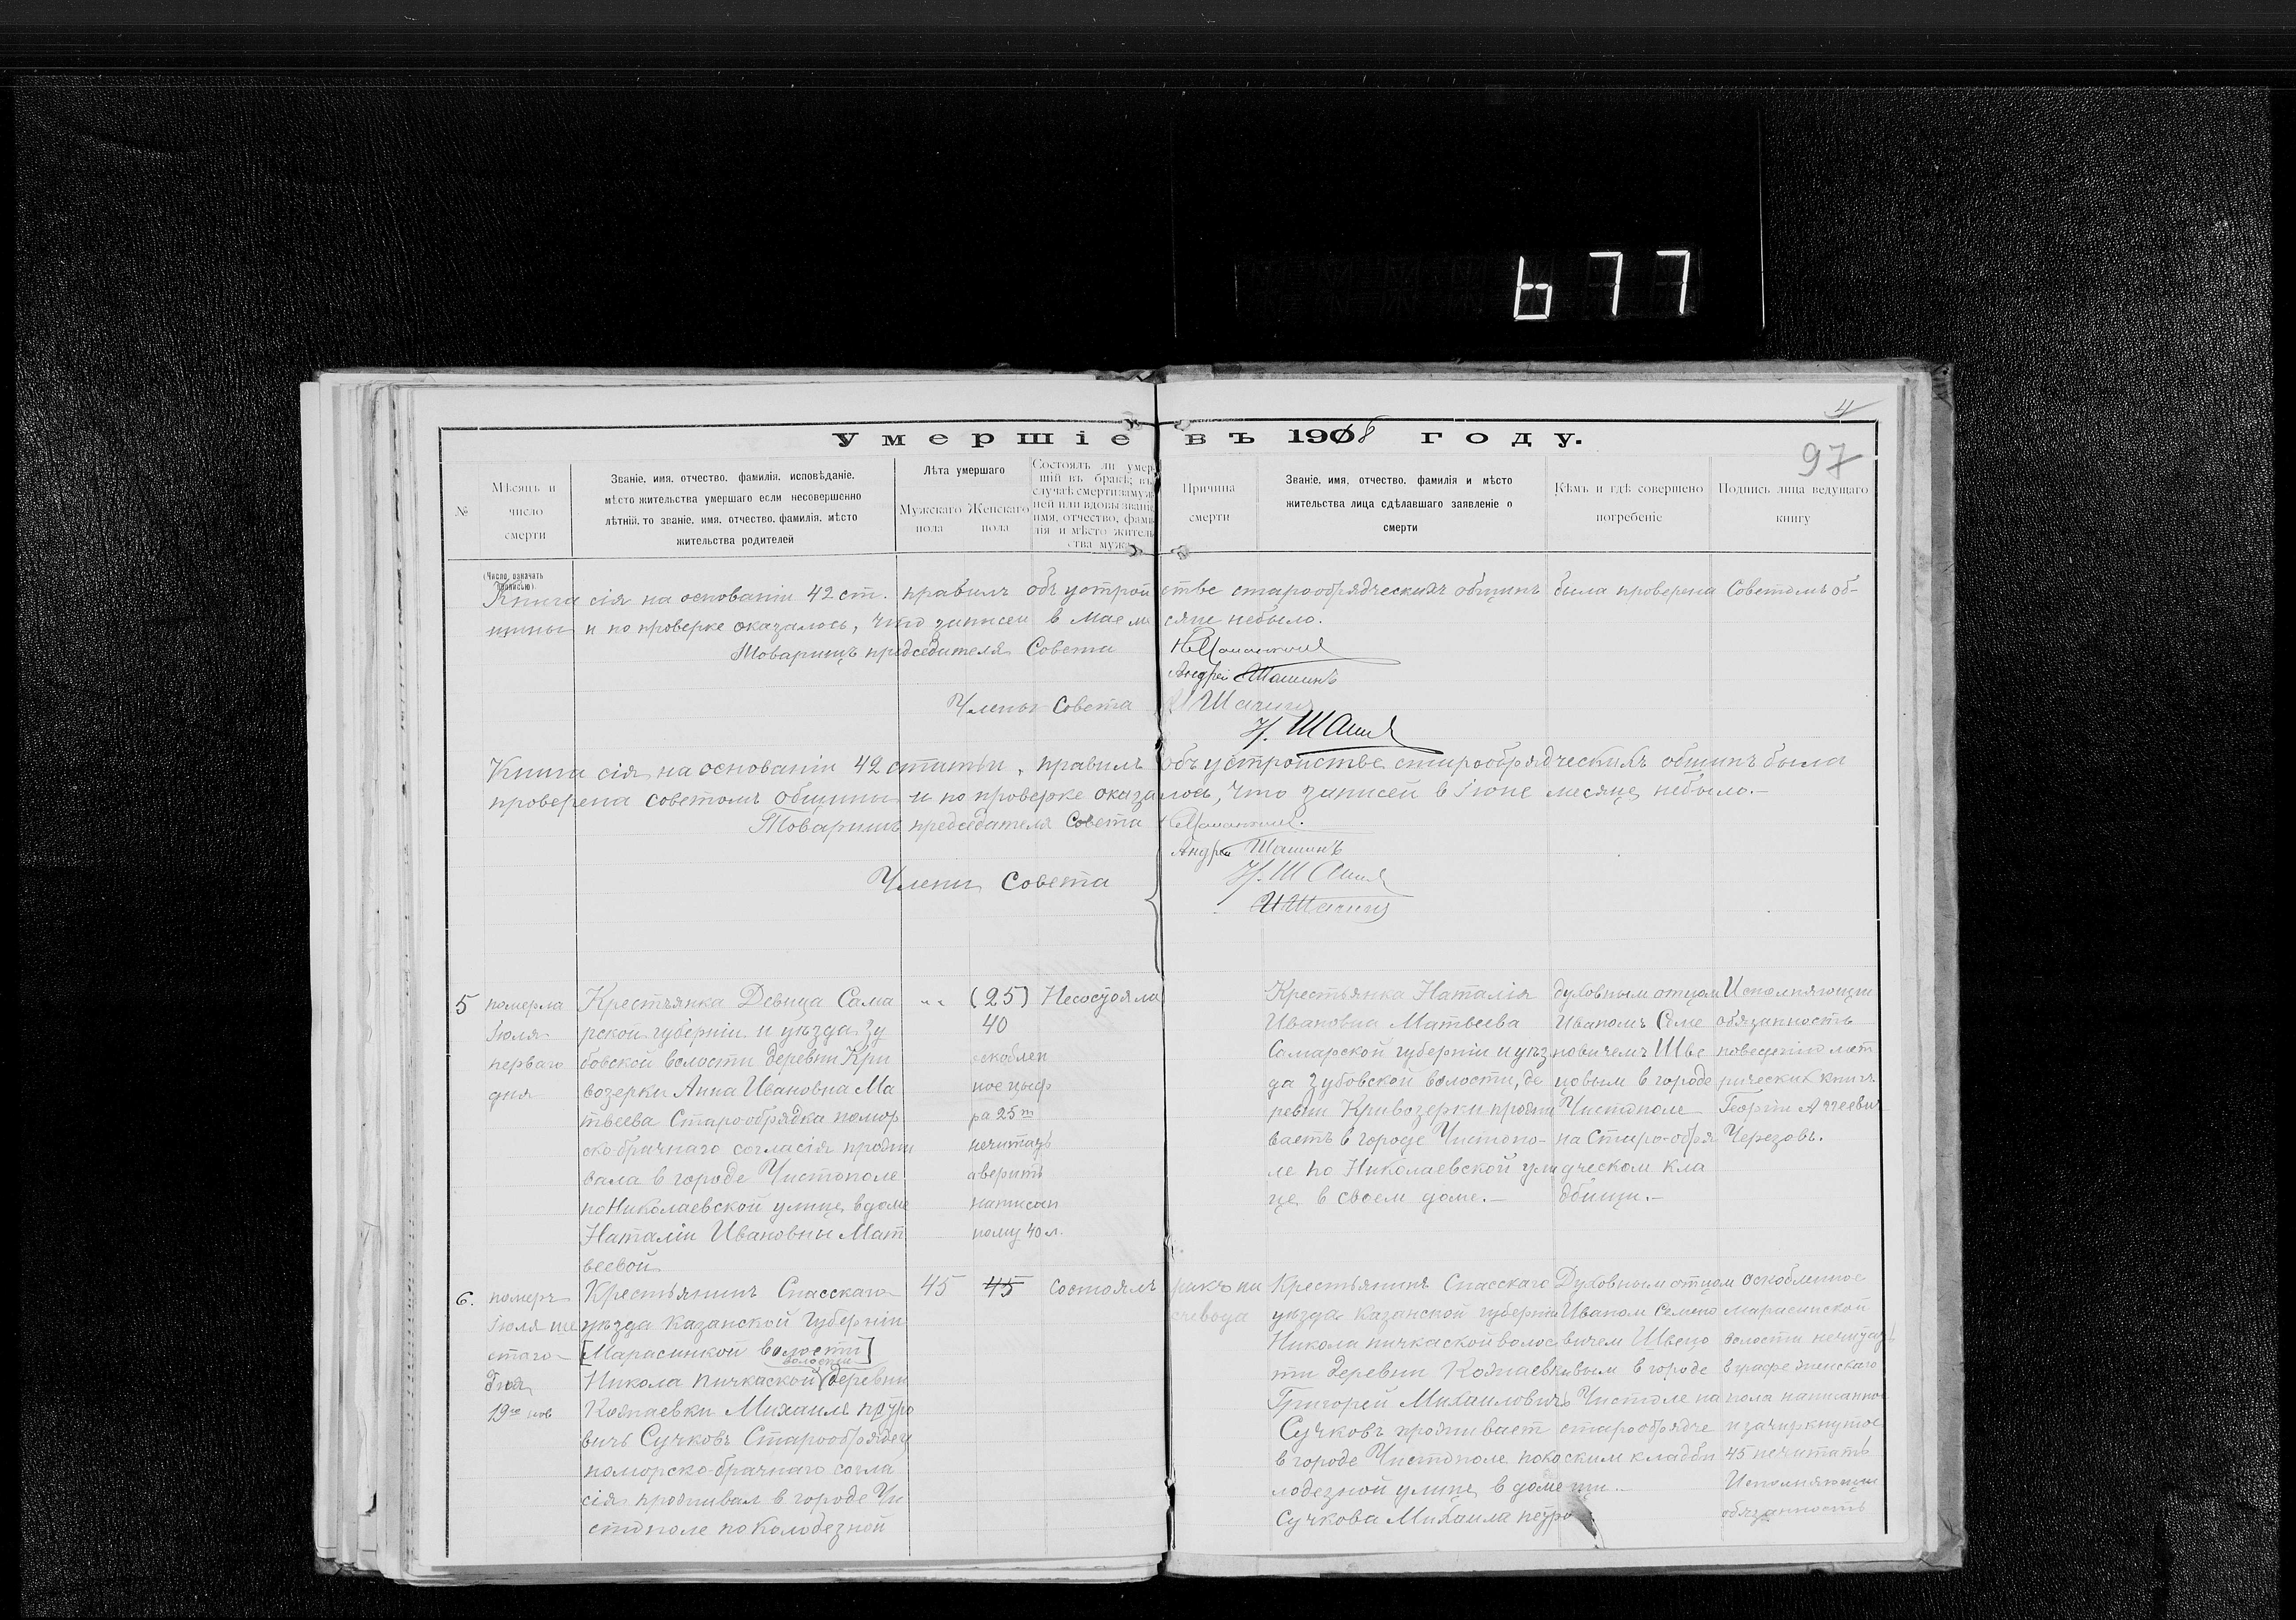 677
4
Умершіе въ 1908 году.
97
№
Мѣсяцъ и число смерти
Званіе, имя, отчество, фамилія, исповѣданіе,
мѣсто жительства умершаго если несовершенно
лѣтній, то званіе, имя, отчество, фамилія, мѣсто
жительства родителей
Лѣта умершаго
Мужскаго пола
Женскаго пола
Состоялъ ли умер-
шій въ бракѣ; въ
случаѣ смерти замуж-
ней или вдовы званіе,
имя, отчество, фами-
лія и мѣсто житель-
ства мужа
Причина смерти
Званіе, имя, отчество, фамилія и мѣсто
жительства лица сдѣлавшаго заявленіе о
смерти
Кѣмъ и гдѣ совершено
погребеніе
Подпись лица ведущаго
книгу
(Число означать
прописью)
Книга сія на основаніи 42 ст. правилъ объ устройстве старообрядческихъ общинъ была проверена Советомъ об-
щины и по проверке оказалось, что записей в Мае месяце небыло.
Товарищъ председателя Совета
Андрей Шашинъ
Члены Совета
Н. Шашин
Книга сія на основаніи 42 статьи, правилъ объ устройстве старообрядческихъ общинъ была
проверена советомъ общины и по проверке оказалось, что записей в Іюне месяце небыло.-
Товарищъ председателя Совета
Андрей Шашинъ
Члены Совета
Н. Шашин
5
померла
Іюля
перваго
дня
Крестьянка Девица Сама
рской губерніи и уезда Зу
бовской волости деревни Кри
возерки Анна Ивановна Ма
твеева Старообрядка помор
ско-брачнаго согласія прожи
вала в городе Чистополе
по Николаевской улице, в доме
Наталіи Ивановны Мат
веевой
„ „
(25)
40
оскоблен
ное цыф
ра 25 т
нечитать
а верить
написан
ному 40 л.
Несостояла
Крестьянка Наталія
Ивановна Матвеева
Самарской губерніи и уез
да Зубовской волости, де
ревни Кривозерки прожи
ваетъ в городе Чистопо-
ле по Николаевской ули
це, в своем доме.-
духовным отцом
Иваномъ Семе
новичемъ Шве
цовым в городе
Чистополе
на Старо-обря
дческом кла
дбищи.-
Исполняющи
обязанность
поведенію мет
рических книгъ
Георгій Аггеевич
Черезовъ.
6.
померъ
Іюля ше
стаго
дня
19го нов
Крестьянинъ Спасскаго
уезда Казанской Губерніи
[Марасинкой волости]
волости
Никола Пичкаской деревни
Кожаевки Михаилъ петро
вичъ Сучковъ Старообрядец
поморско-брачнаго согла
сія проживал в городе Чи
стополе по Колодезной
45
45
Состоялъ
ракъ пи
щевода
Крестьянинъ Спасскаго
уезда Казанской губерніи
Никола пичкаской волос
ти деревни Кожаевки
Григорей Михаиловичъ
Сучковъ проживает
в городе Чистополе по Ко
лодезной улице, в доме
Сучкова Михаила петро
Духовным отцом
Иваном Семено
вичем Швецо
вым в городе
Чистополе на
старообрядче
ском кладби
щи.-
оскобленное
марасинской
волости нечитать
в графе женскаго
пола написанное
и зачиркнутое
45 нечитать
Исполняющи
обязанность